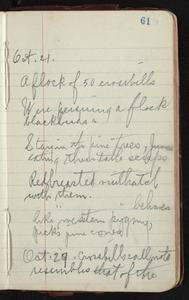 61
Oct. 21.
A flock of 50 crossbills
Were pursuing a flock
blackbirds.
Stay in the pine trees,
eating
Redbreasted nuthatch
with them. " behaves
like western pygmy,
picks pine cones.
Oct. 29. Crossbills note
resembles that of the